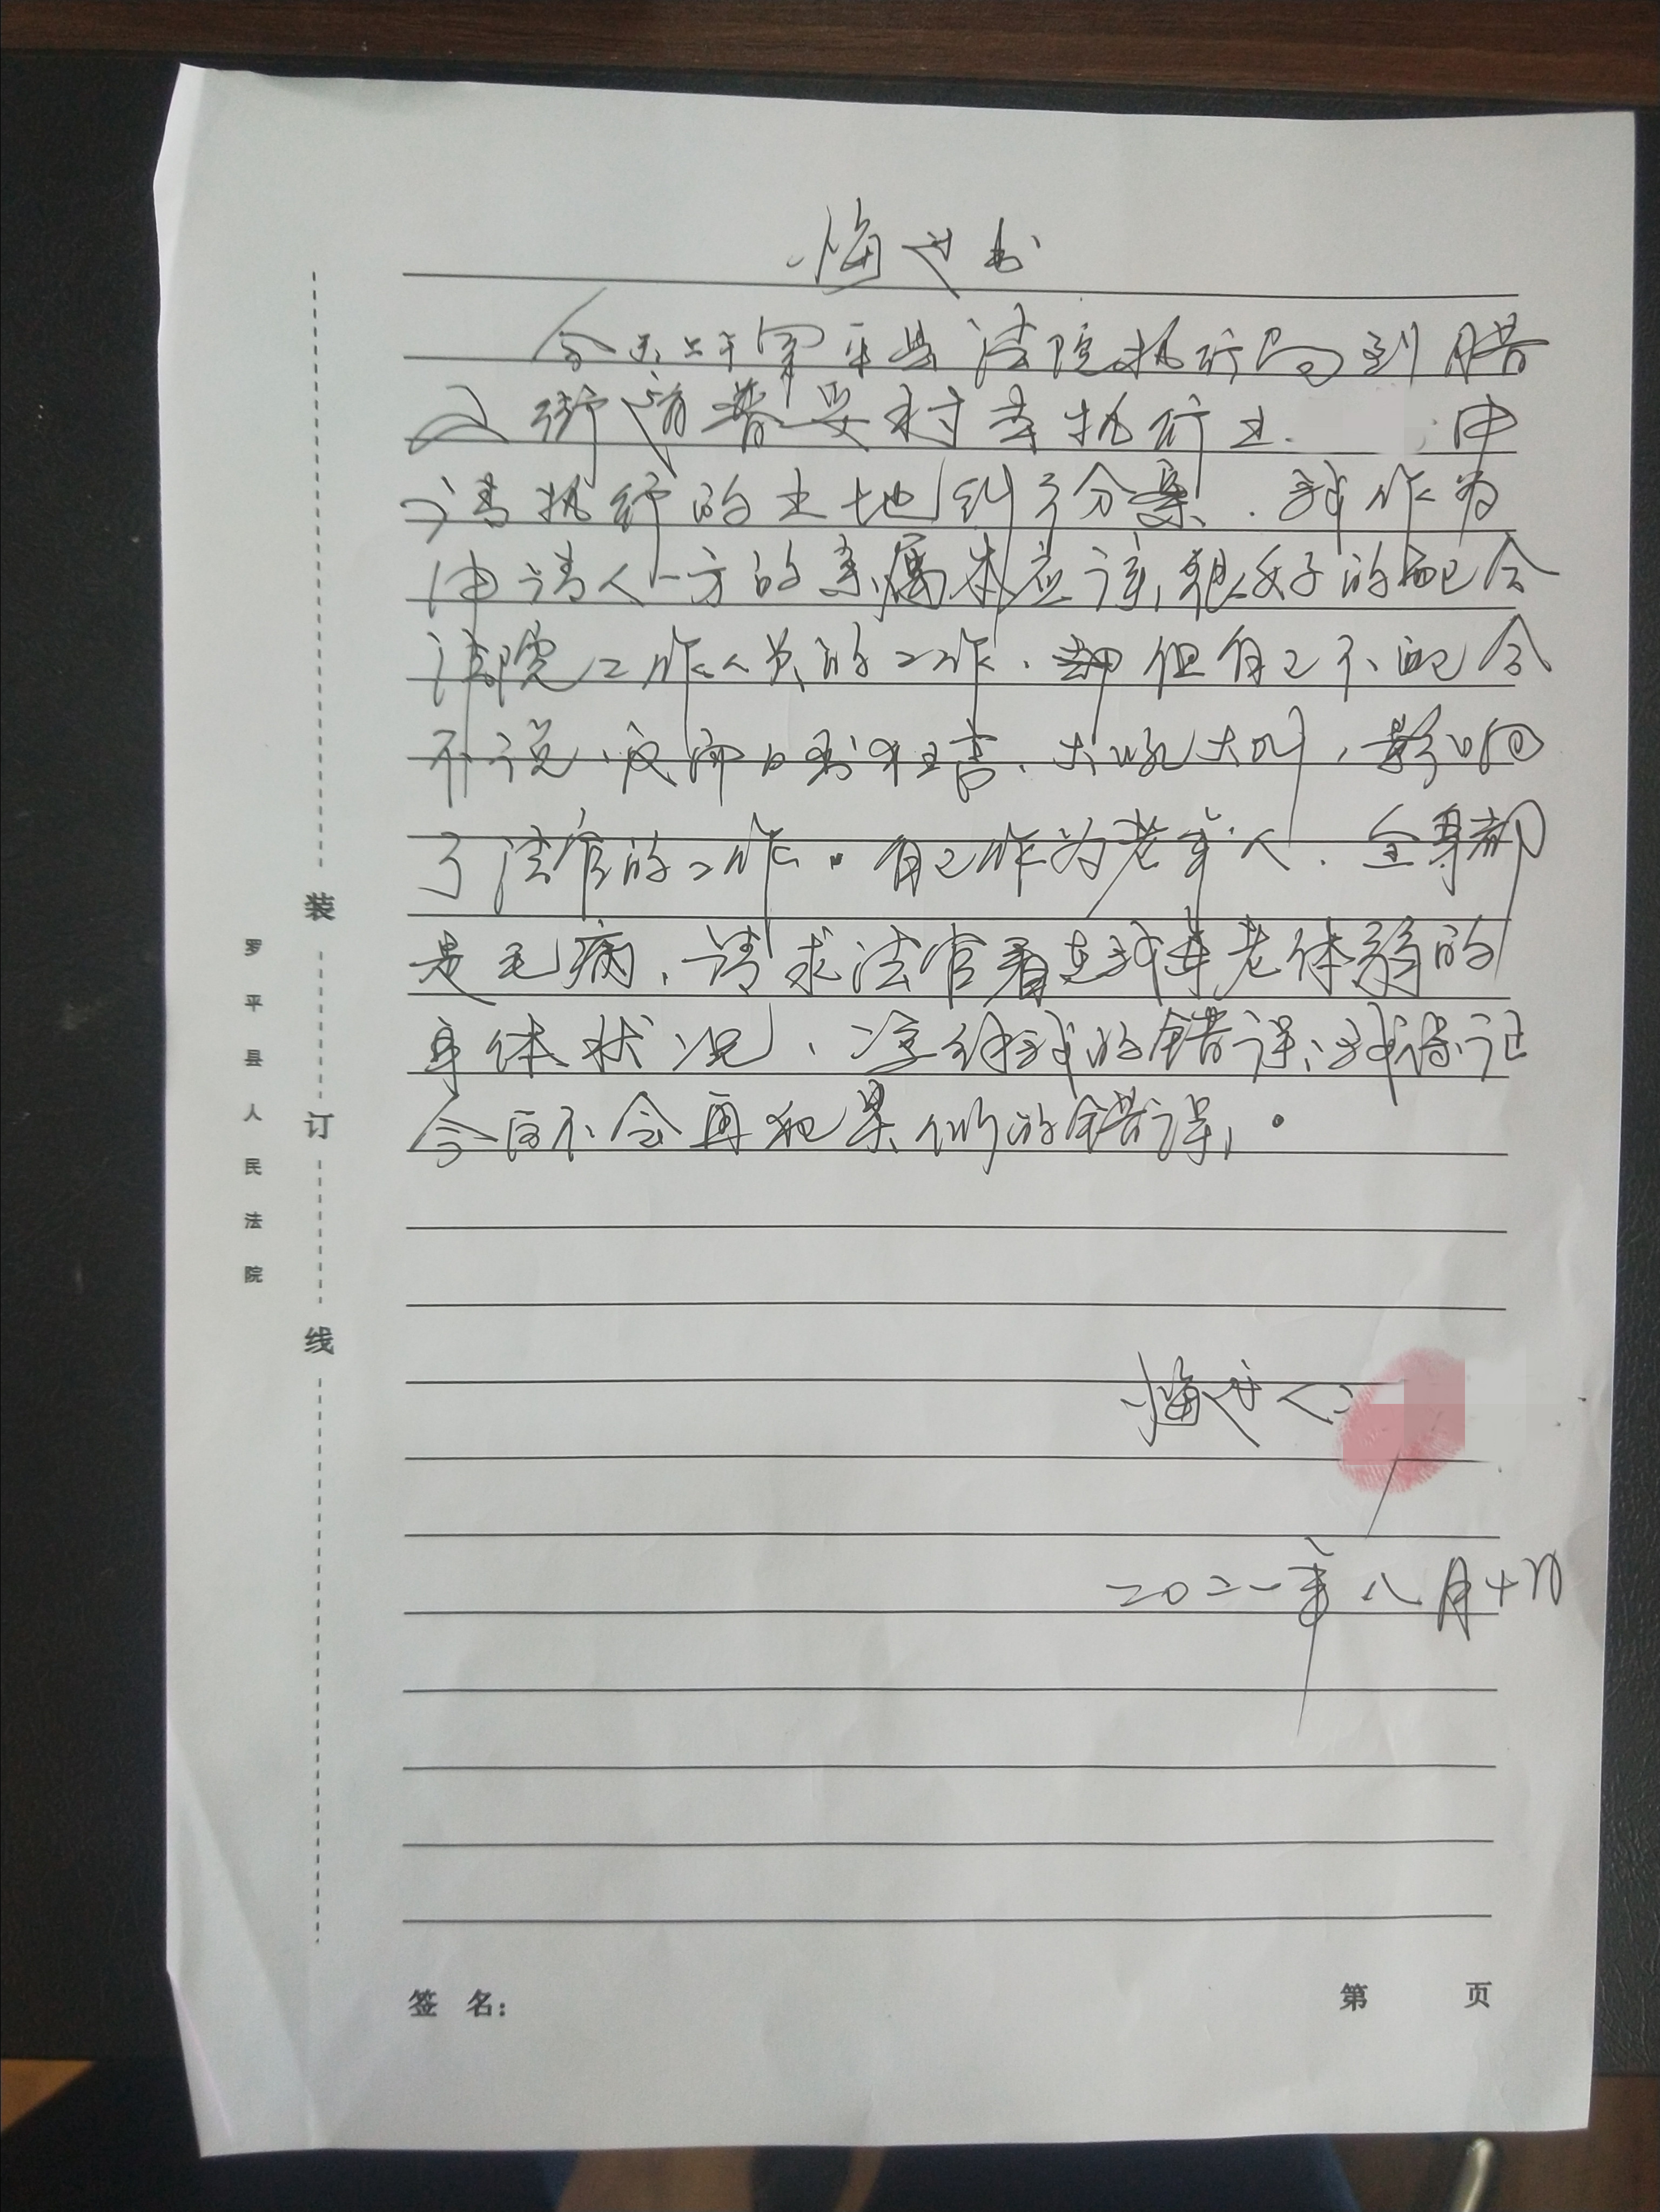 悔过书
今天上午罗平县法院执行局到腊
山街道普妥村去执行土 申
请执行的土地纠纷案，我作为
申请人一方的亲属本应该很好的配合
法院工作人员的工作，但自己不配合
不说，反而口出狂言、大吼大叫，影响
了法官的工作。自己作为老年人，全身都
是毛病，请求法官看在我年老体弱的
身体状况，谅解我的错误，我保证
今后不会再犯类似的错误。
悔过人：
二〇二一年八月十
装
订
线
罗平县人民法院
签 名：
第 页